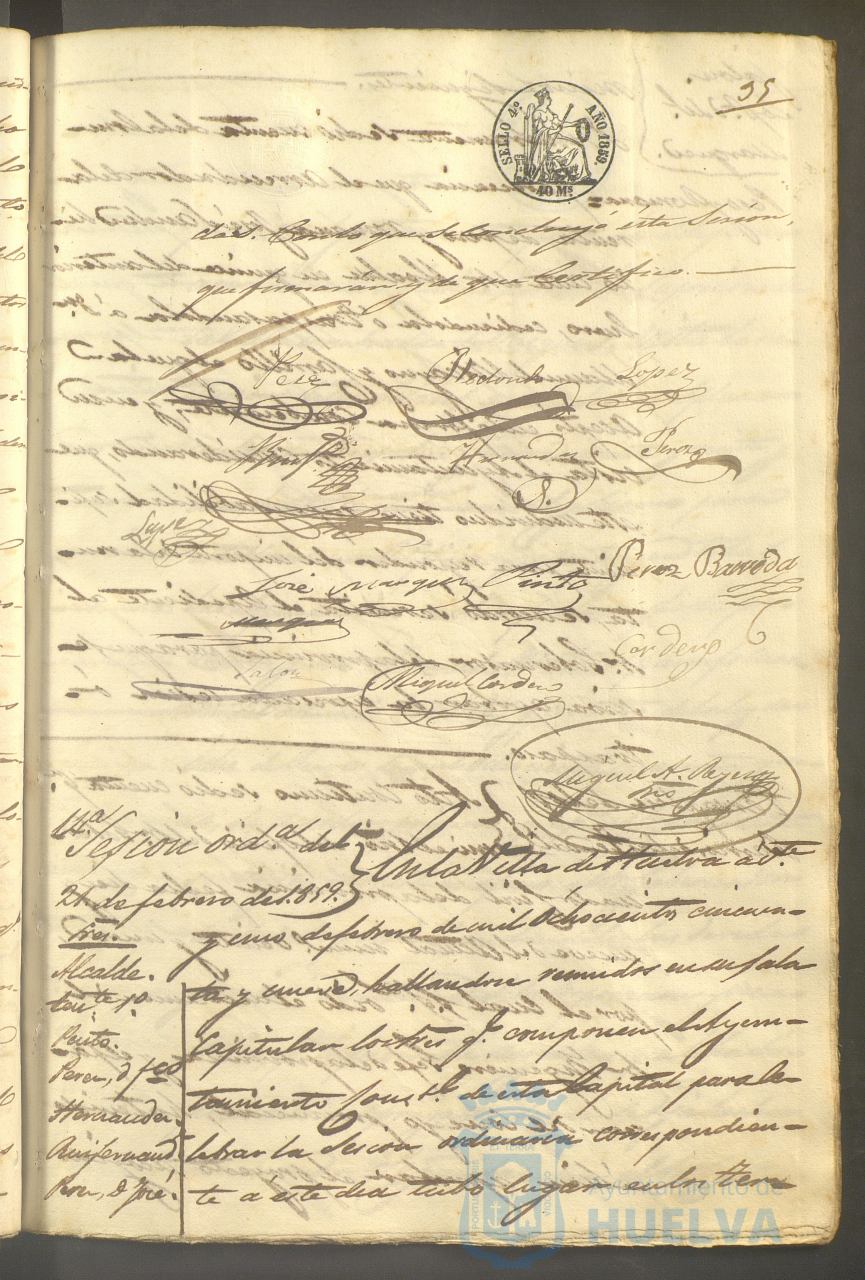 35
SELLO 4º. AÑO 1859
40 Ms.
das. Con lo que se concluyó esta Sesion,
que firmarán y de que Certifico.
Redondo
Lopez
Hernandez
Perez
Lopez
José Marquez
Pinto
Pérez Barroda
Marquez
Cordero
Miguel Cordero
Miguel A. Rejen
Srio
Sesion ord.ª del
21 de febrero de 1.859.
Sres.
Alcalde.
ten.te 1.º
Pinto.
Perez, d. fco
Hernandez.
Perez, d. José.
En la Villa de Huelva á v.te
y uno de febrero de mil Ochocientos cincuen-
ta y nueve, hallandose reunidos en su Sala
Capitular los Sres q.e componen el Ayun-
tamiento Const.l de esta Capital para ce-
lebrar la Sesion ordinaria correspondien-
te á este dia tubo lugar en los ter-
Ayuntamiento de
HUELVA